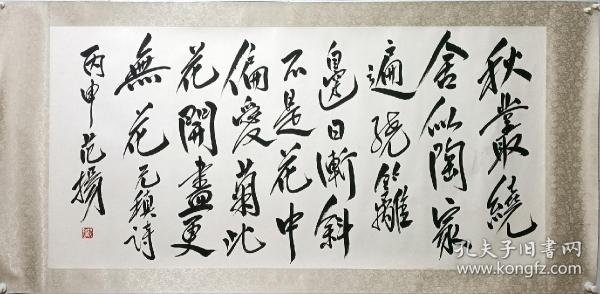 秋叢繞
舍似陶家
遍繞籬
邊日漸斜
不是花中
偏愛菊此
花開盡更
無花元稹詩
丙申范揚
孔夫子旧書网
www.kongfz.com